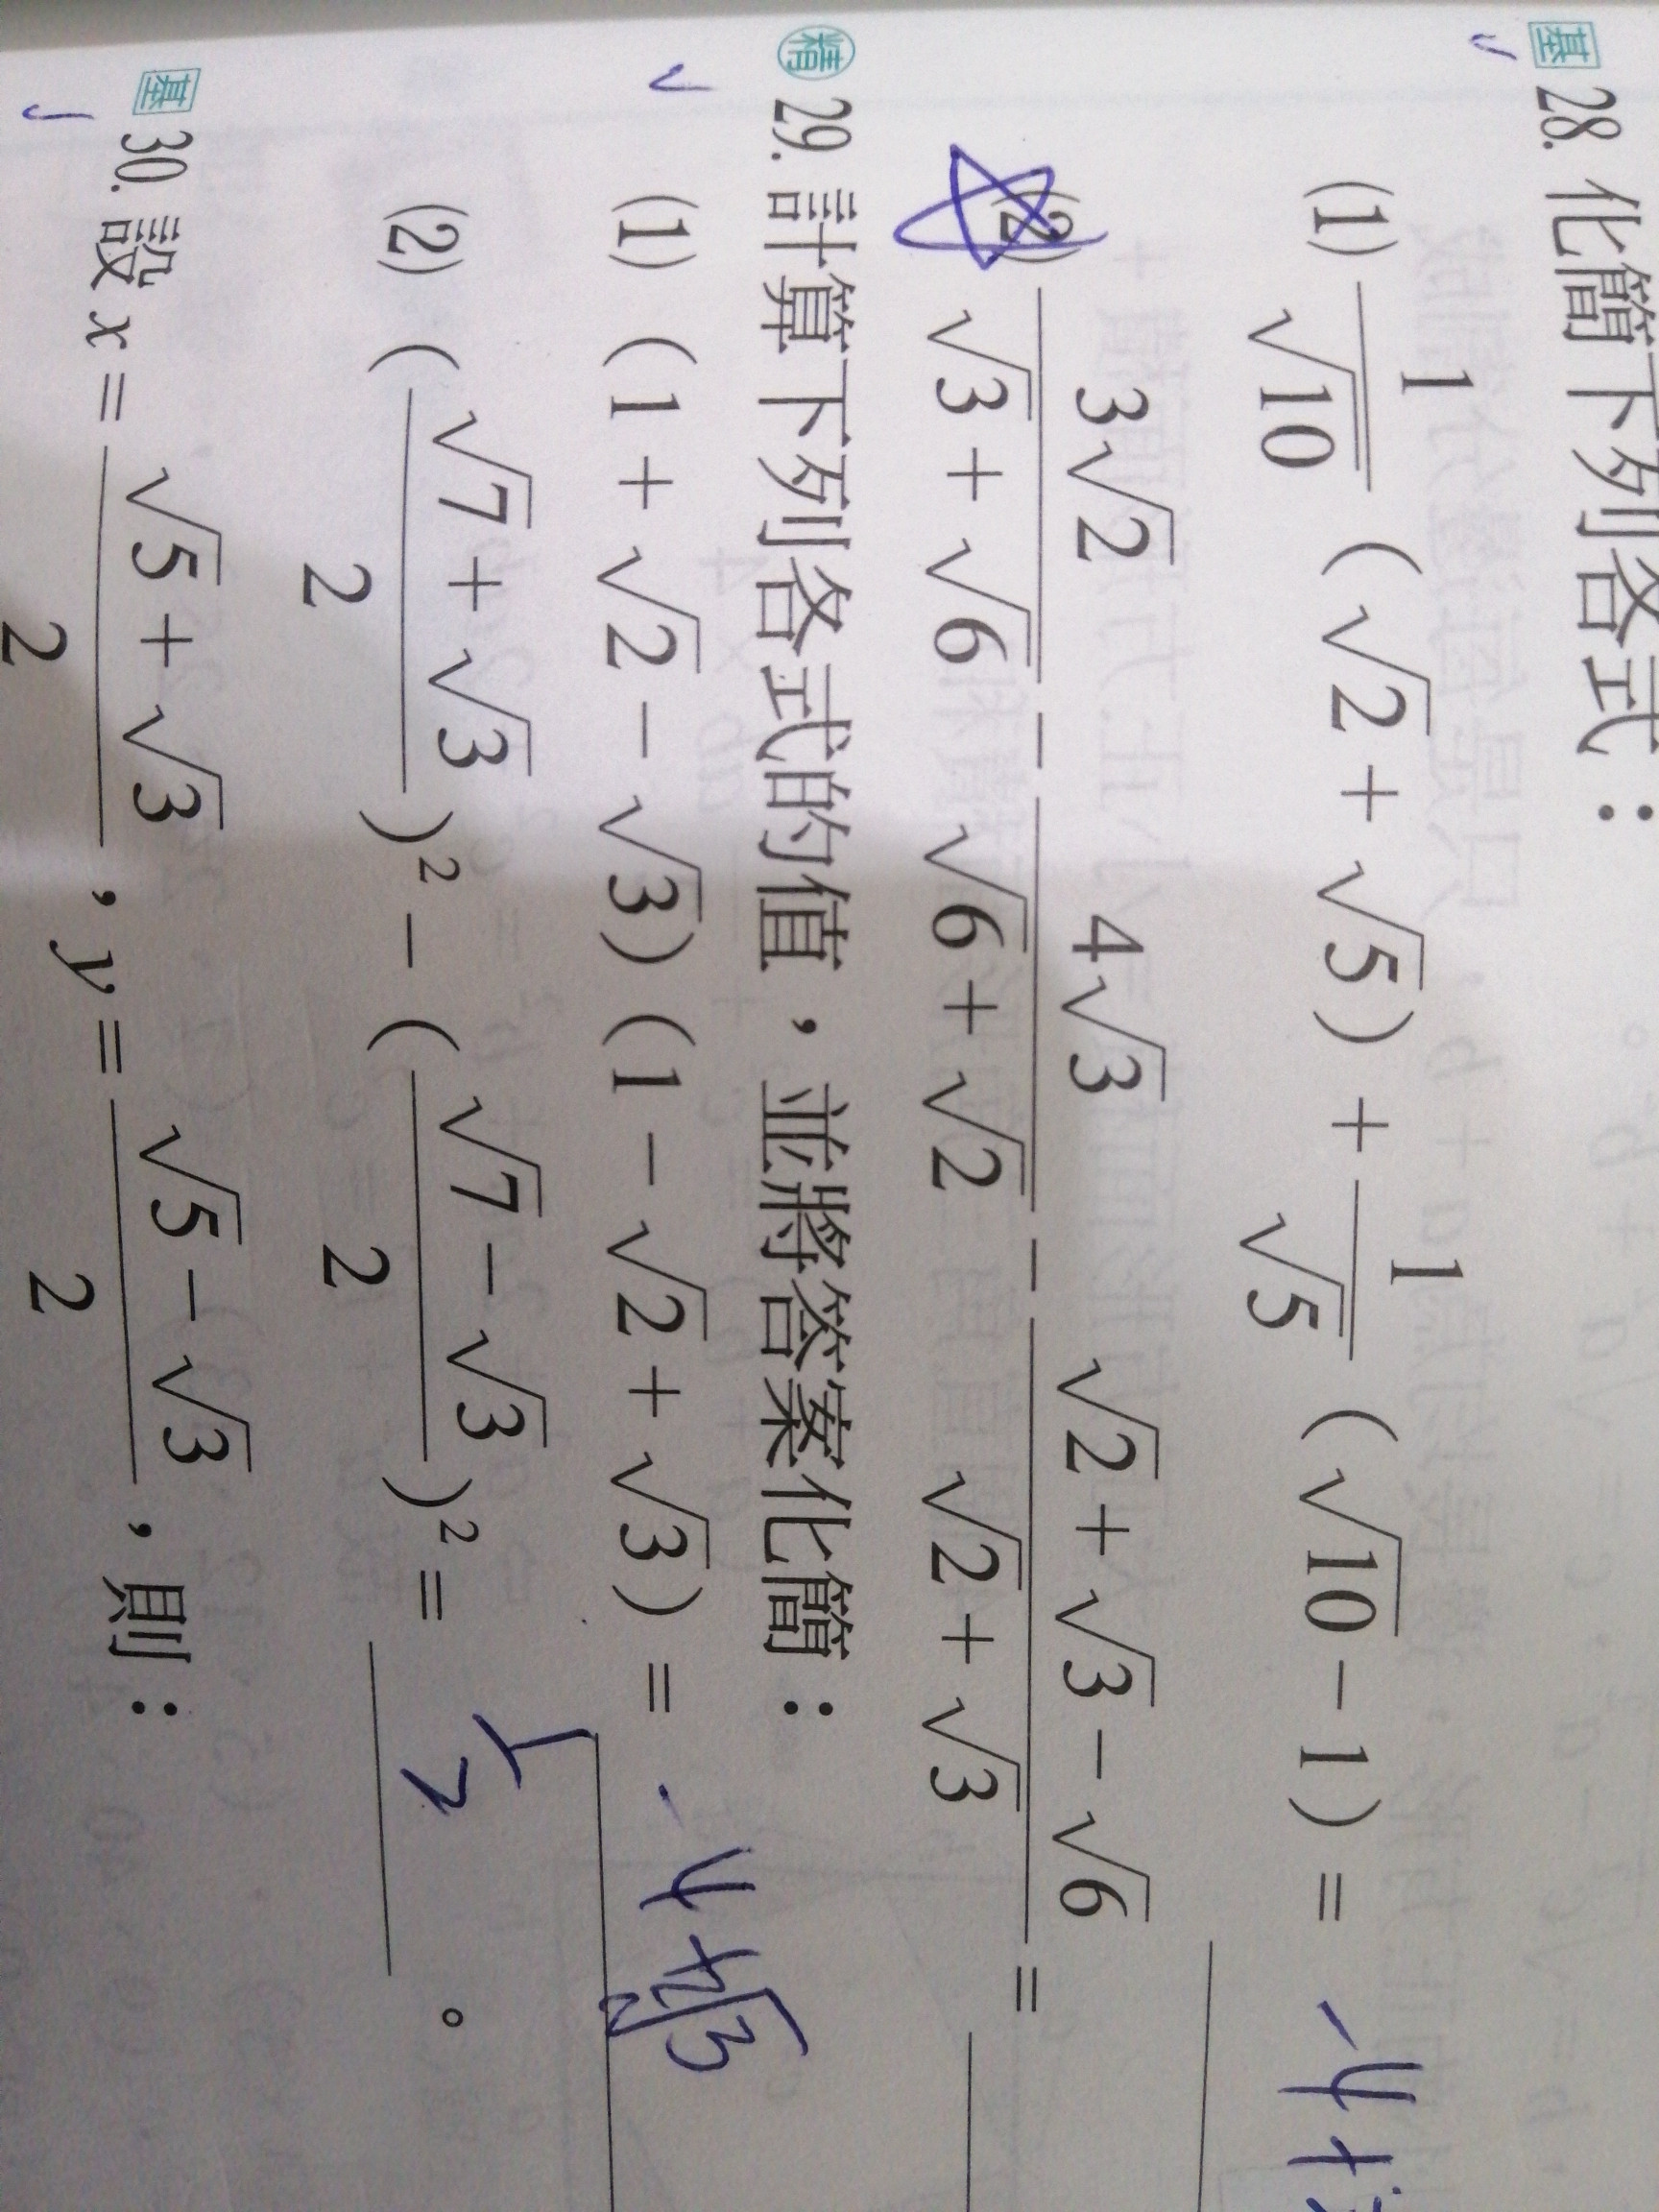 基 28. 化簡下列各式：
(1) 1/√10 (√2 + √5) + 1/√5 (√10 − 1) = -4+
(2) 3√2/(√3 + √6) − 4√3/(√6 + √2) − (√2 + √3 − √6)/(√2 + √3) =
精 29. 計算下列各式的值，並將答案化簡：
(1) (1 + √2 − √3)(1 − √2 + √3) = -4+2√3
(2) ((√7 + √3)/2)² − ((√7 − √3)/2)² = 。
基 30. 設 x = (√5 + √3)/2，y = (√5 − √3)/2，則：